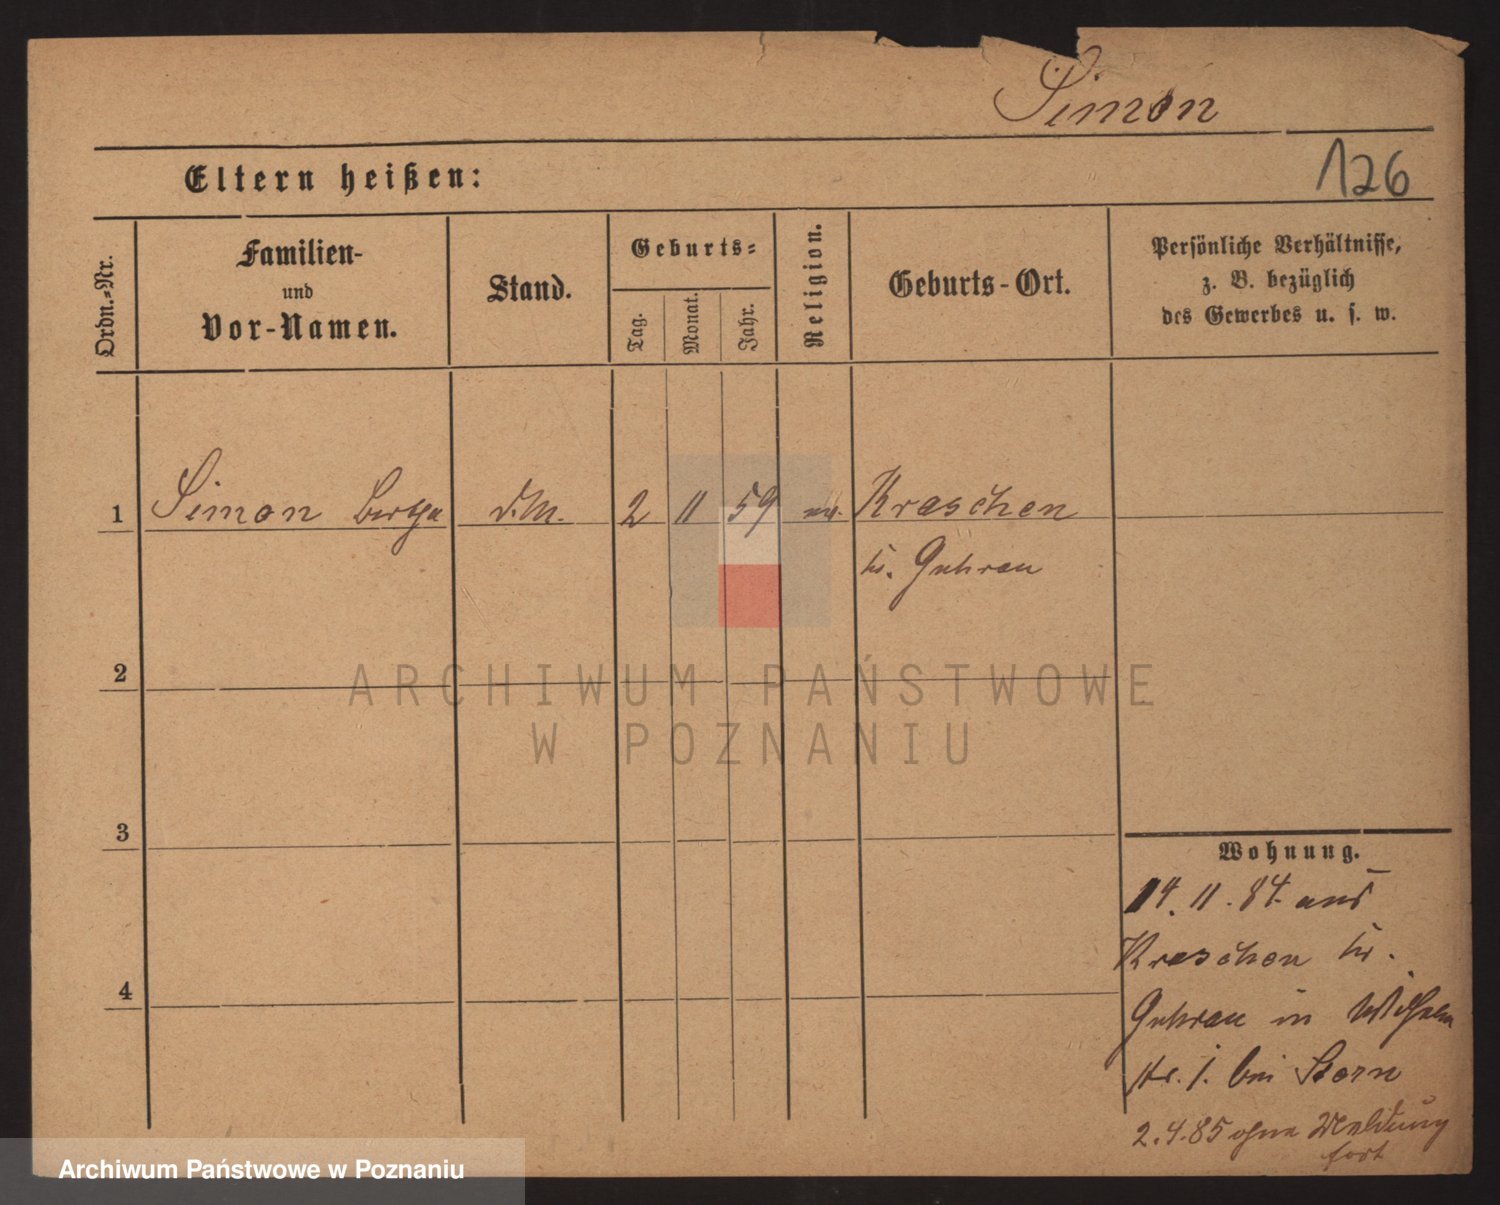 Simon
Eltern heißen:
126
Ordn.-Nr.
Familien-
und
Vor-Namen.
Stand.
Geburts-
Tag.
Monat.
Jahr.
Religion.
Geburts-Ort.
Persönliche Verhältnisse,
z. B. bezüglich
des Gewerbes u. s. w.
1 Simon Bertha d.M. 2 11 59 Kraschen
Kr. Guhrau
2
ARCHIWUM PAŃSTWOWE
W POZNANIU
3
Wohnung.
14. 11. 84. aus
Kraschen Kr.
4
Guhrau in Wilhelm
str. 1. bei Stern
2.4.85 ohne Meldung
fort
Archiwum Państwowe w Poznaniu